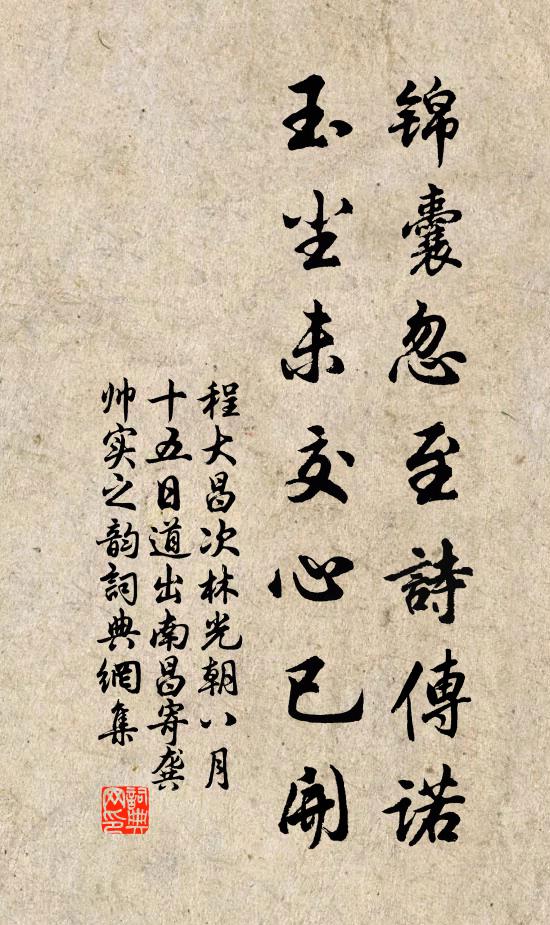 锦囊忽至詩傳诺
玉尘未交心已開
程大昌次林光朝八月
十五日道出南昌寄龚
帅实之韵詞典網集
詞典
网印